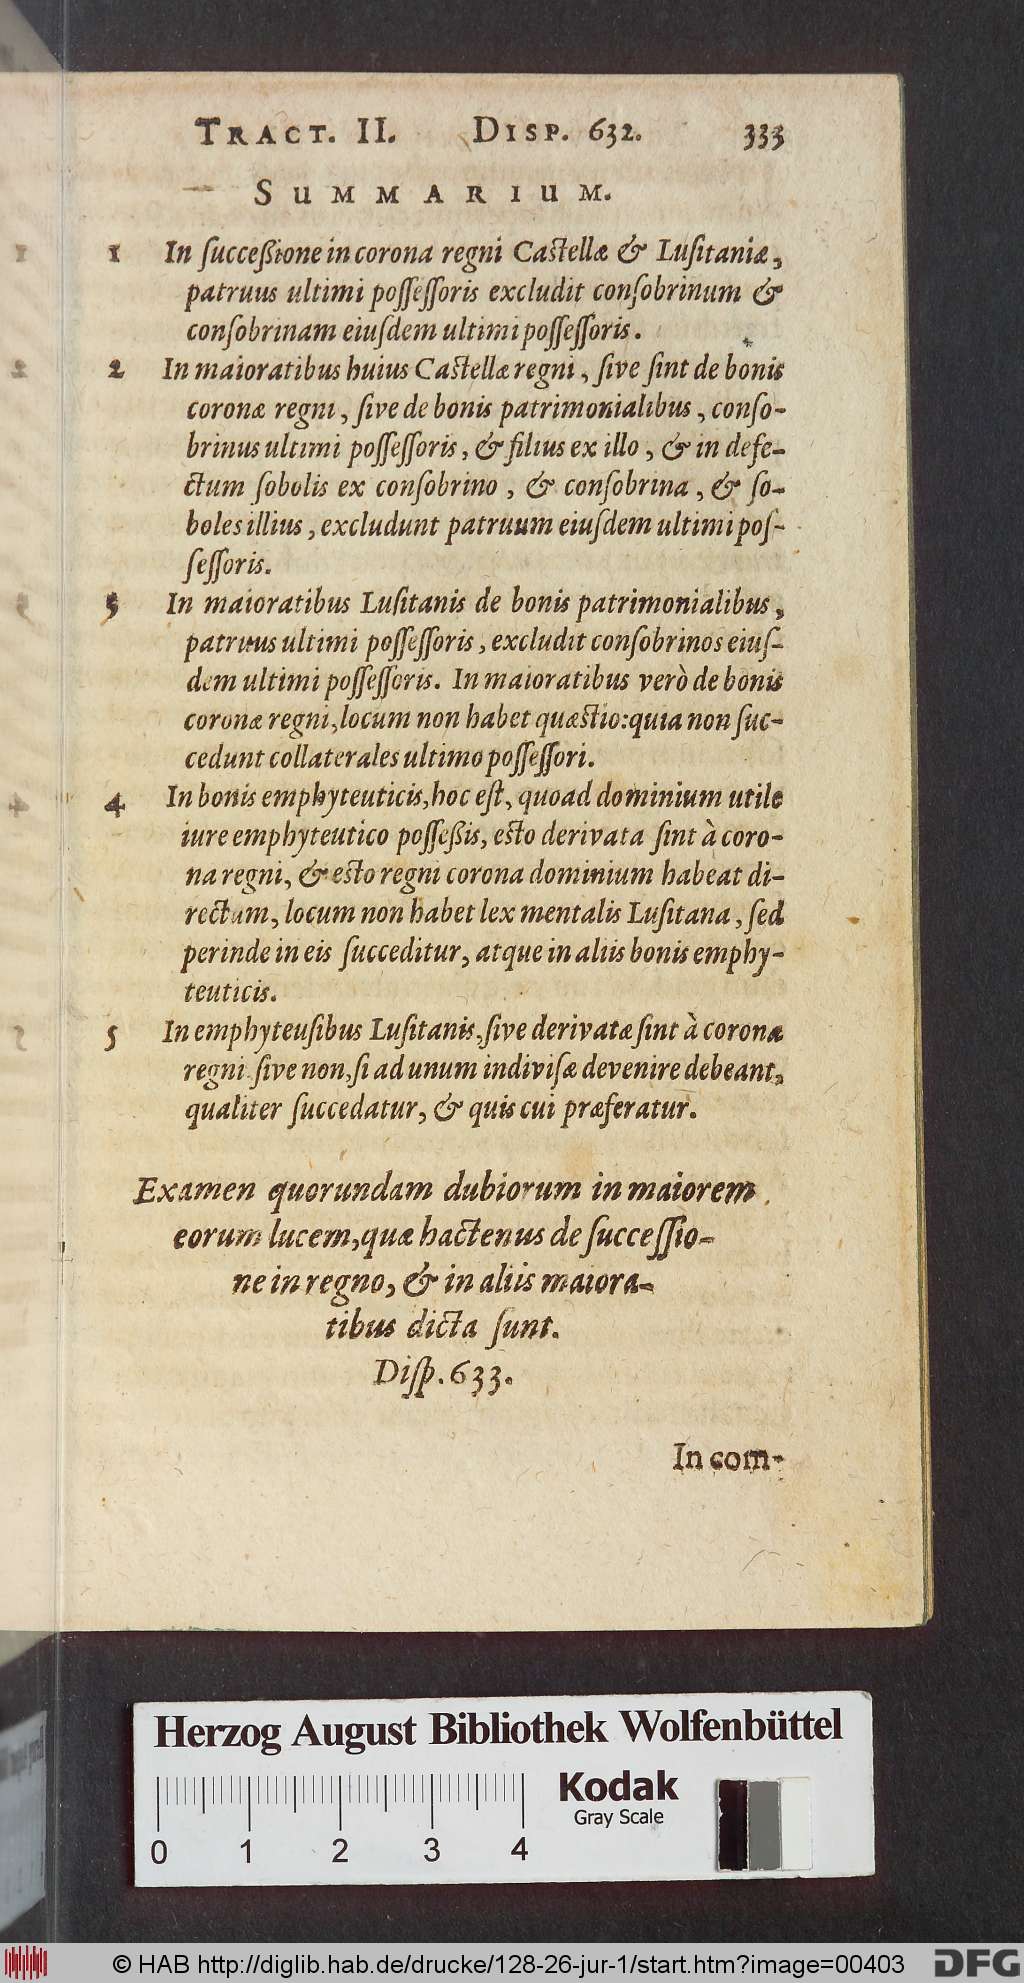 TRACT. II. DISP. 632. 333
SUMMARIUM.
1 In succeßione in corona regni Castellæ & Lusitaniæ,
patruus ultimi possessoris excludit consobrinum &
consobrinam eiusdem ultimi possessoris.
2 In maioratibus huius Castellæ regni, sive sint de bonis
coronæ regni, sive de bonis patrimonialibus, conso-
brinus ultimi possessoris, & filius ex illo, & in defe-
ctum sobolis ex consobrino, & consobrina, & so-
boles illius, excludunt patruum eiusdem ultimi pos-
sessoris.
3 In maioratibus Lusitanis de bonis patrimonialibus,
patruus ultimi possessoris, excludit consobrinos eius-
dem ultimi possessoris. In maioratibus verò de bonis
coronæ regni, locum non habet quæstio: quia non suc-
cedunt collaterales ultimo possessori.
4 In bonis emphyteuticis, hoc est, quoad dominium utile
iure emphyteutico posseßis, esto derivata sint à coro-
na regni, & esto regni corona dominium habeat di-
rectum, locum non habet lex mentalis Lusitana, sed
perinde in eis succeditur, atque in aliis bonis emphy-
teuticis.
5 In emphyteusibus Lusitanis, sive derivatæ sint à corona
regni sive non, si ad unum indivisæ devenire debeant,
qualiter succedatur, & quis cui præferatur.
Examen quorundam dubiorum in maiorem
eorum lucem, quæ hactenus de successio-
ne in regno, & in aliis maiora-
tibus dicta sunt.
Disp. 633.
In com-
Herzog August Bibliothek Wolfenbüttel
Kodak
Gray Scale
0 1 2 3 4
© HAB http://diglib.hab.de/drucke/128-26-jur-1/start.htm?image=00403
DFG